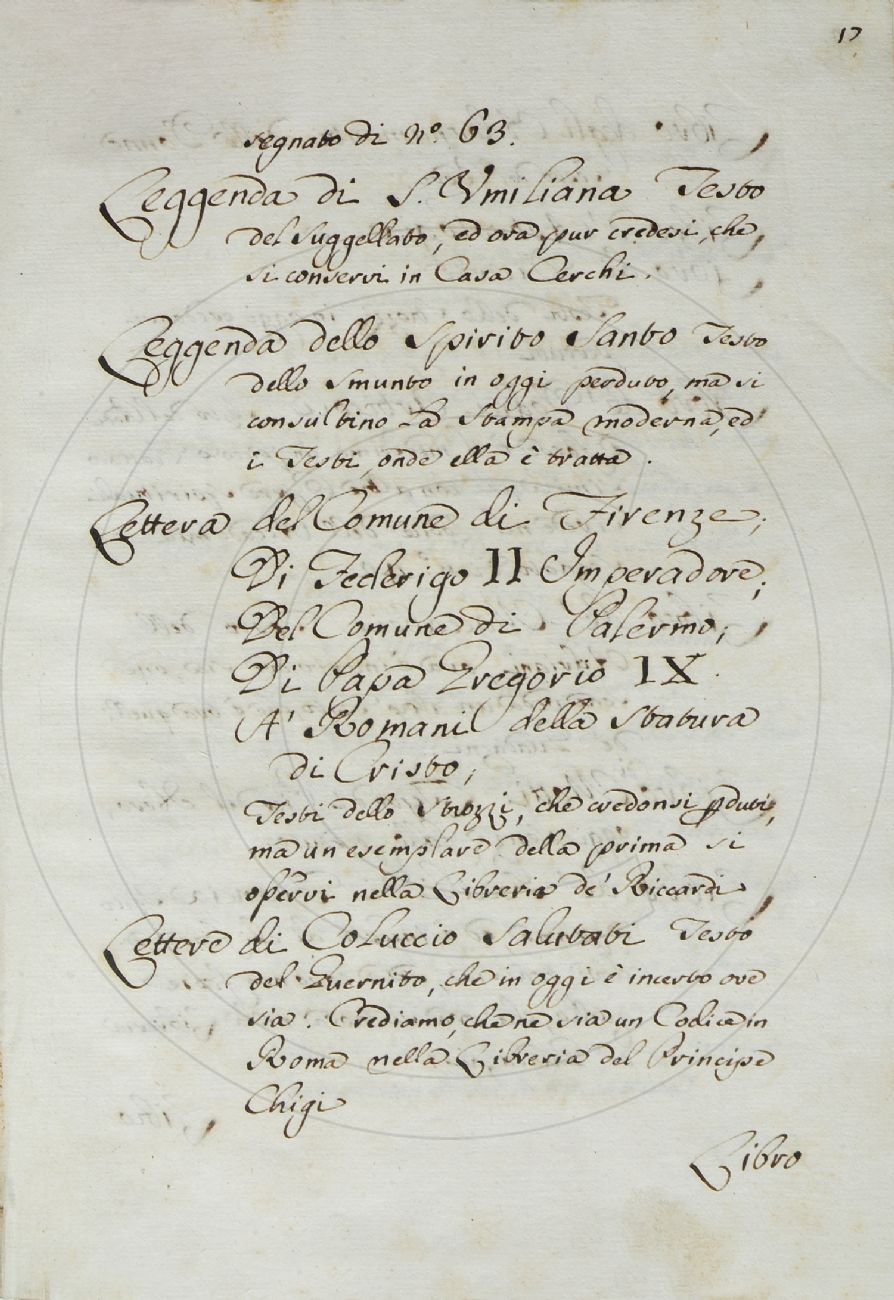 17
segnato di nº. 63.
Leggenda di S. Vmiliana Testo
del Suggellato, ed ora pur credesi, che
si conservi in Casa Cerchi.
Leggenda dello Spirito Santo Testo
dello Smunto in oggi perduto, ma si
consultino La Stampa moderna, ed
i Testi, onde ella è tratta.
Lettera del Comune di Firenze;
Di Federigo II Imperadore;
Del Comune di Palermo;
Di Papa Gregorio IX.
A' Romani della Statura
di Cristo;
Testi dello Strozzi, che credonsi pduti,
ma un esemplare della prima si
osservi nella Libreria de' Riccardi
Lettere di Coluccio Salutati Testo
del Guernito, che in oggi è incerto ove
sia. Crediamo, che ne sia un Codice in
Roma nella Libreria del Principe
Chigi
Libro